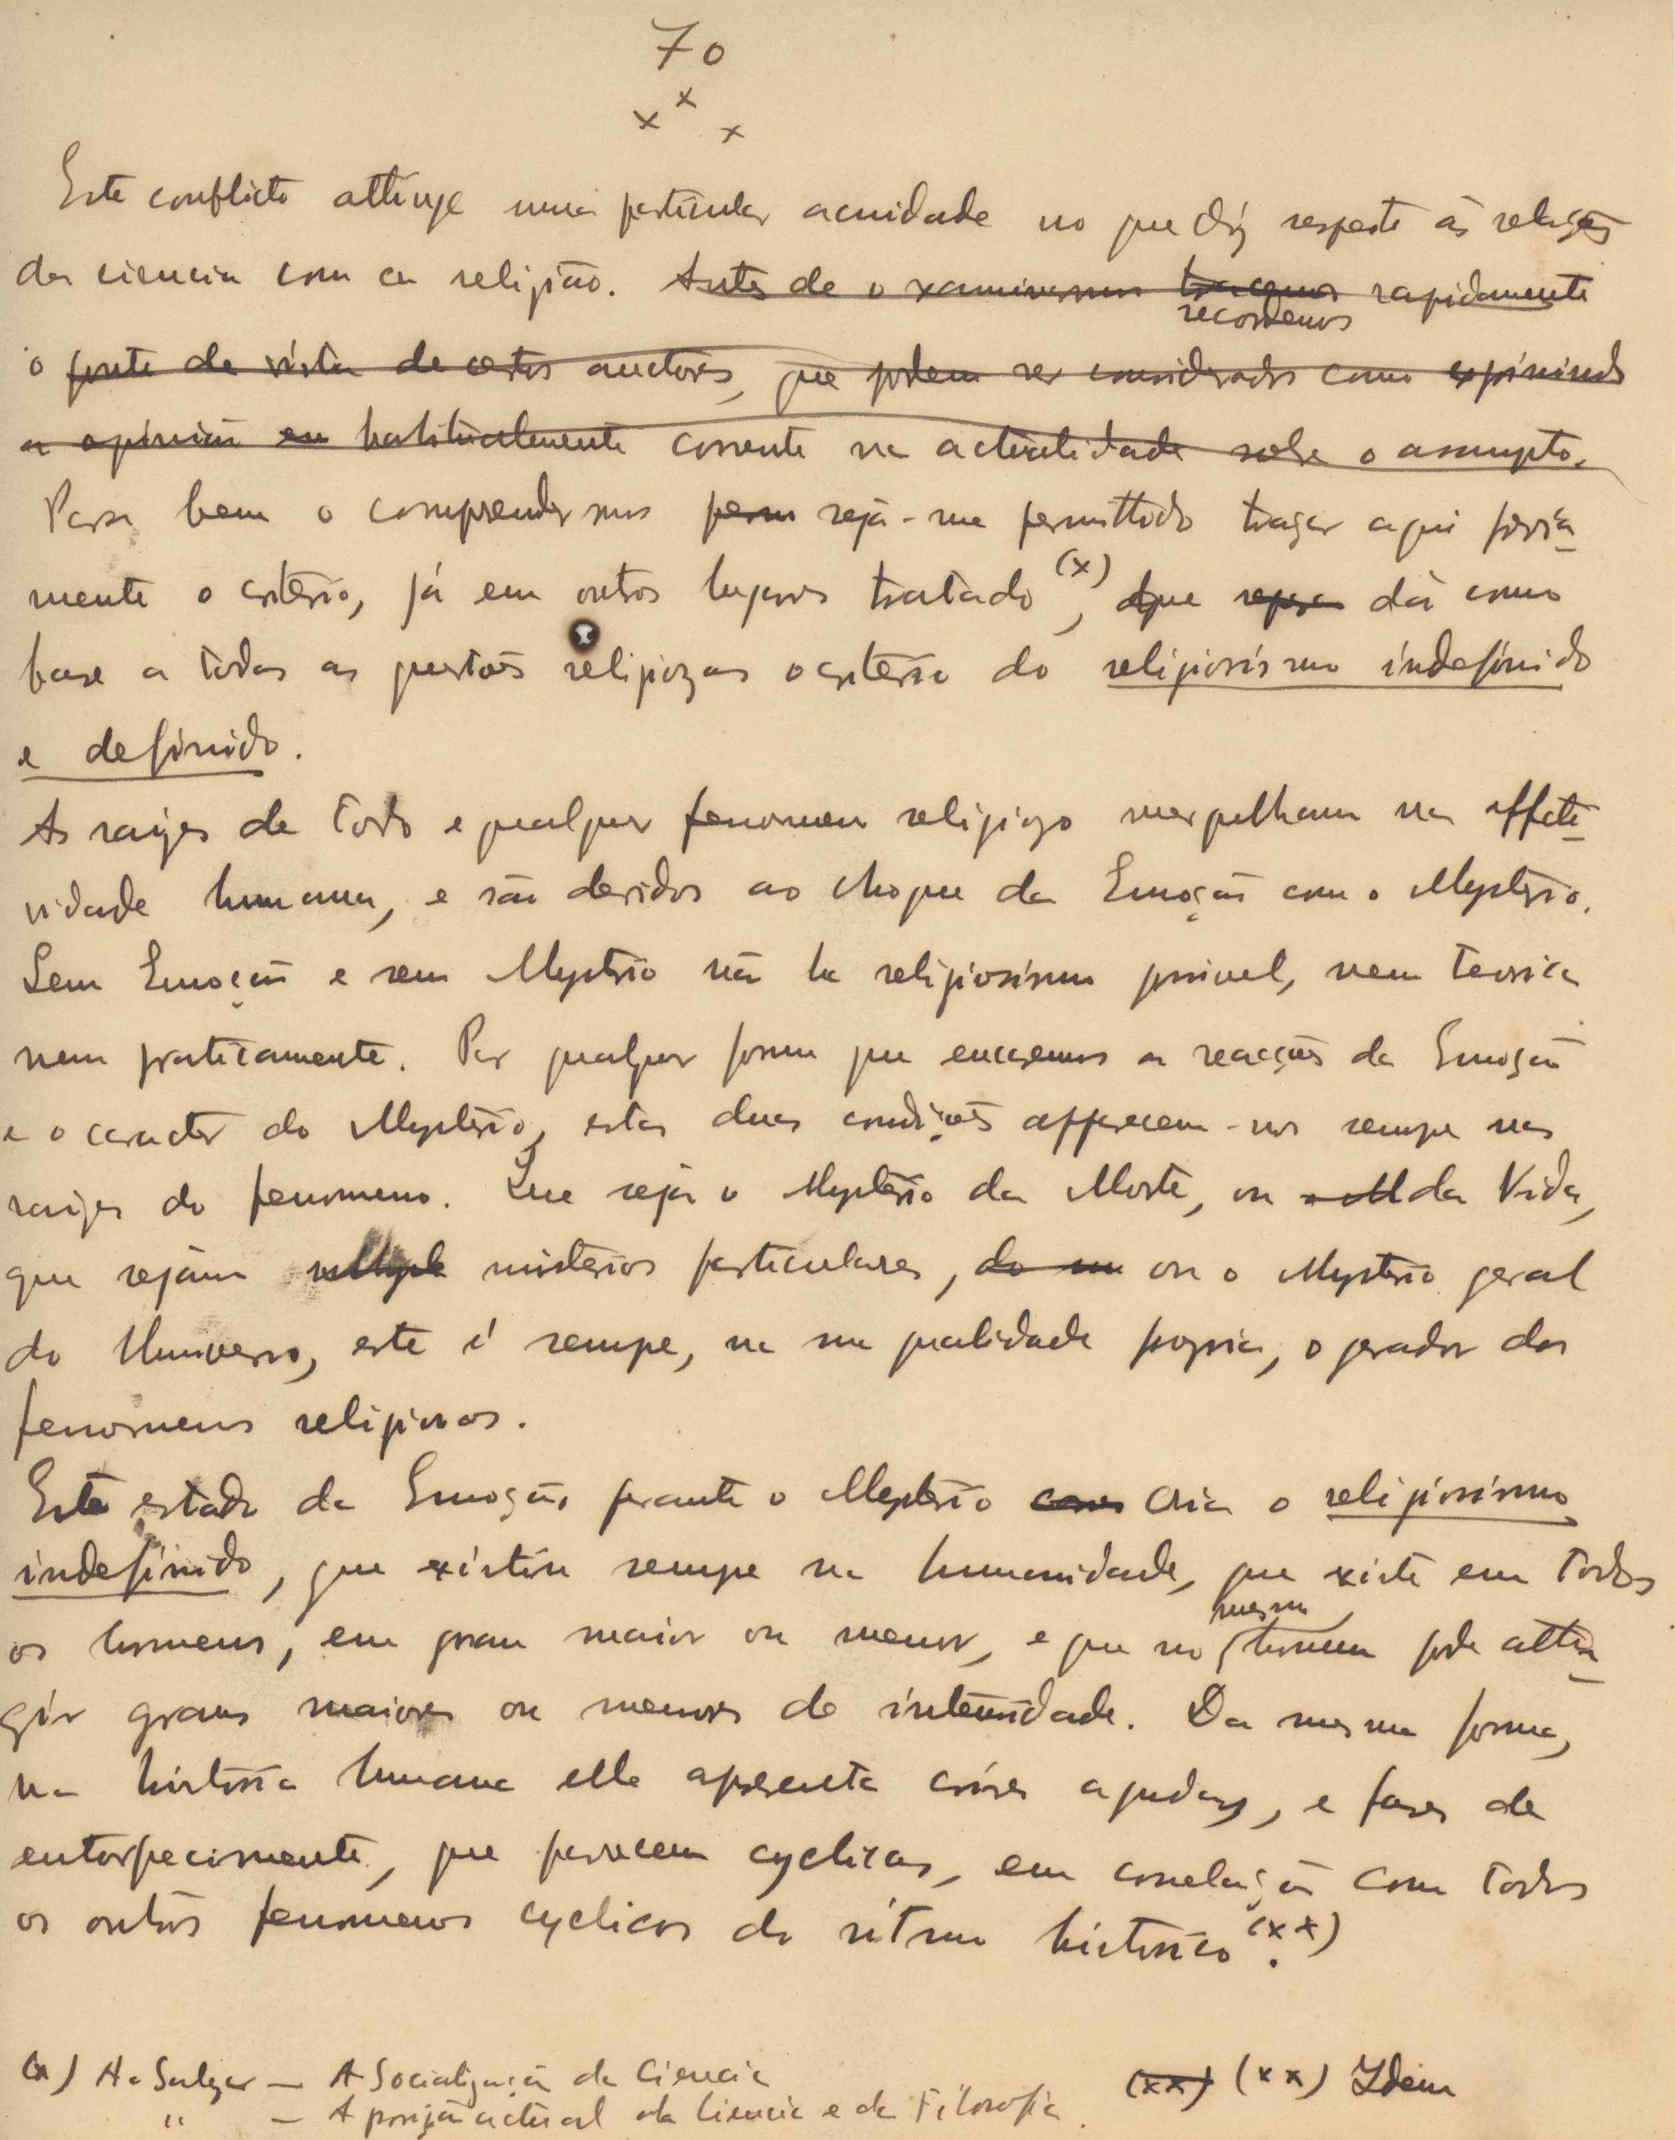 70
x x x
Este conflicto attinge uma particular acuidade no que diz respeito ás relações
da ciencia com a religião. Antes de o examinarmos tracemos rapidamente
recordemos
o ponto de vista de certos auctores, que podem ser considerados como exprimindo
a opinião en habitualmente corrente na actualidade sobre o assumpto.
Para bem o comprendermos perm seja-me permittido traçar aqui previa-
mente o criterio, já em outros lugares tratado (x), que dá como
base a todas as questões religiozas o criterio do religiosismo indefinido
e definido.
As raizes de todo e qualquer fenomeno religiozo mergulham na affeti-
vidade humana, e são devidos ao choque da Emoção com o Mysterio.
Sem Emoção e sem Mysterio não ha religiosismo possivel, nem teorica
nem praticamente. Por qualquer forma que encaremos as reacções da Emoção
e o caracter do Mysterio, estas duas condições apparecem-nos sempre nas
raizes do fenomeno. Que seja o Mysterio da Morte, ou o M da Vida,
que sejam misterios particulares, ou o Mysterio geral
do Universo, este é sempre, na sua qualidade propria, o gerador dos
fenomenos religiosos.
Este estado da Emoção perante o Mysterio cria o religiosismo
indefinido, que existiu sempre na humanidade, que existe em todos
os homens, em grau maior ou menor, e que no mesmo homem pode attin-
gir graus maiores ou menores de intensidade. Da mesma forma,
na historia humana elle apresenta crises agudas, e fases de
entorpecimento, que parecem cyclicas, em correlação com todos
os outros fenomenos cyclicos do ritmo historico (xx).
(x) A. Salazar — A Socialização da Ciencia
" — A posição actual da Ciencia e da Filosofia.
(xx) (xx) Idem